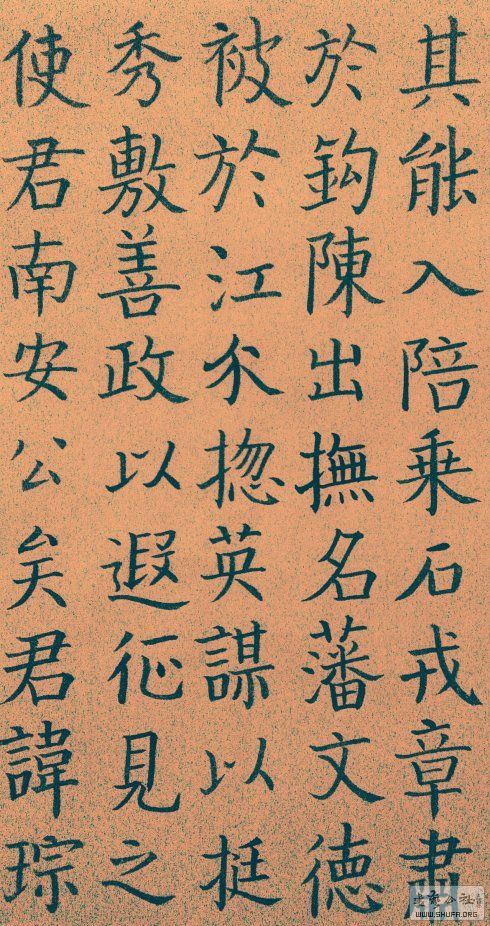 其能入陪乗石戎章肅
於鈎陳出撫名藩文德
被於江尒揔英謀以挺
秀敷善政以遐征見之
使君南安公矣君諱琮
WWW.SHUFA.ORG